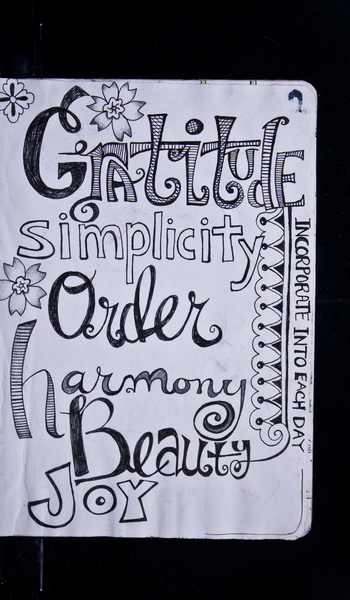 Gratitude
simplicity
Order
harmony
Beauty
JOY
INCORPORATE INTO EACH DAY